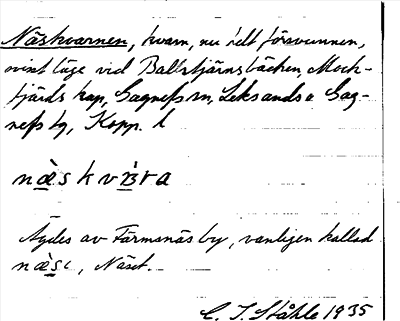 Näskvarnen, kvarn, nu helt försvunnen,
visst läge vid Ballstjärnsbäcken, Mock-
fjärds kap, Gagnefs sn, Leksands o. Gag-
nefs tg, Kopp. l
Ägdes av Färmsnäs by, vanligen kallad
Näset.
C. I. Ståhle 1935